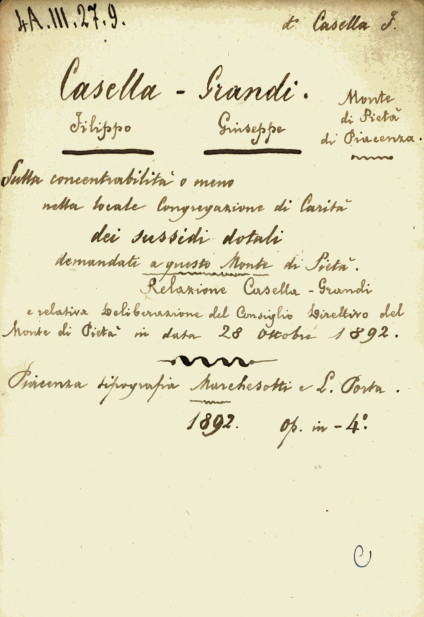 4A.III.27.9.
dº Casella F.
Casella - Grandi.
Filippo Giuseppe
Monte
di Pietà
di Piacenza.
Sulla concentrabilità o meno
nella locale Congregazione di Carità
dei sussidi dotali
demandati a questo Monte di Pietà.
Relazione Casella - Grandi
e relativa Deliberazione del Consiglio Direttivo del
Monte di Pietà in data 28 Ottobre 1892.
Piacenza tipografia Marchesotti e L. Porta.
1892. Op. in - 4º.
C